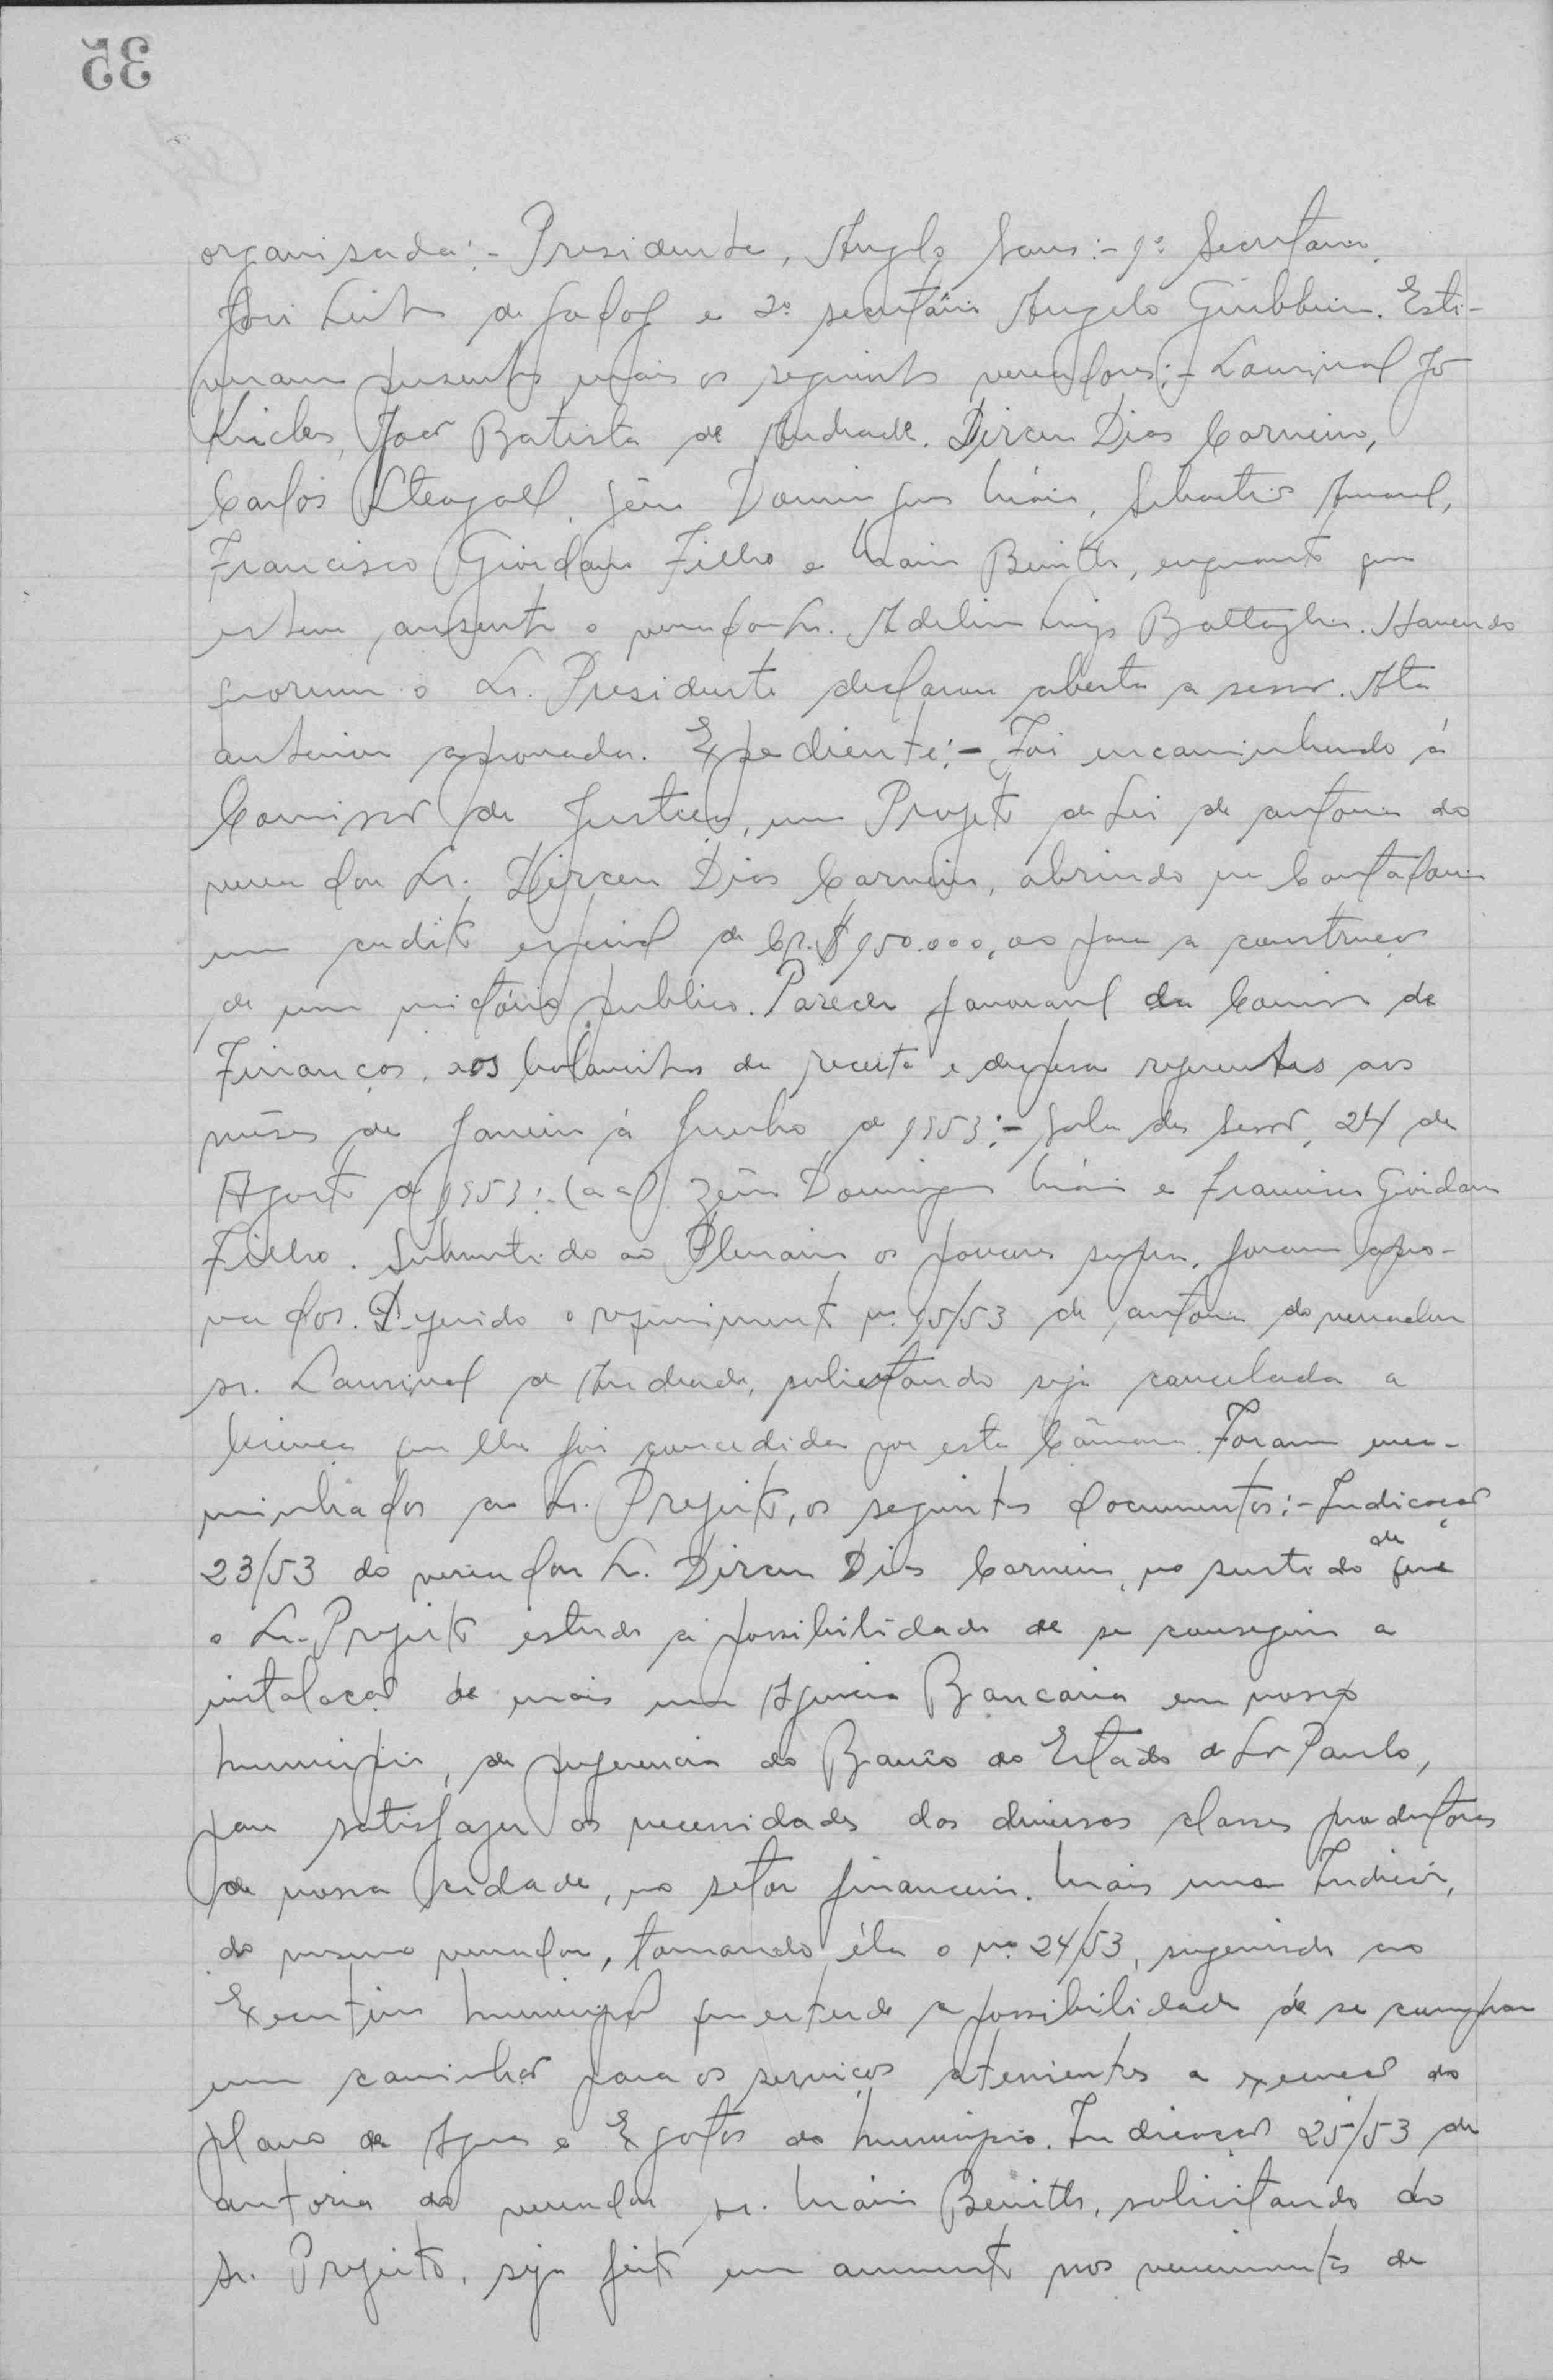 35
organisada:- Presidente, Angelo :- 1º Secretario,
José Leite de Godoy e 2º secretário Angelo Giubbini. Esti-
veram presentes mais os seguintes vereadores:- Lourival
João Batista de Andrade, Dirceu Dias Carneiro,
Carlos Steagall, Domingues Mário, Sebastião Amaral,
Francisco Giordano Filho e Mario Benitts, enquanto que
esteve ausente o vereador Sr. Adelino Luiz Battaglia. Havendo
quorum o Sr. Presidente declarou aberta a sessão. Ata
anterior aprovada. Expediente:- Foi encaminhado á
Comissão de Justiça, um Projeto de Lei de autoria do
vereador Sr. Dirceu Dias Carneiro, abrindo na Contadoria
um credito especial de Cr.$ 150.000,00 para a construção
de um mictório publico. Parecer favoravel da Comissão de
Finanças, aos balancetes da receita e despesa referentes aos
mêses de Janeiro á Junho de 1953:- Sala das Sessão, 24 de
Agosto de 1953:- (aa) Domingues Mário e Francisco Giordano
Filho. Submetido ao Plenario os pareceres supra, foram apro-
vados. Deferido o requerimento nº 15/53 de autoria do vereador
sr. Lourival de Andrade, solicitando seja cancelada a
licença que lhe foi concedida por esta Câmara. Foram enca-
minhados ao Sr. Prefeito, os seguintes documentos:- Indicação
23/53 do vereador Sr. Dirceu Dias Carneiro, no sentido de que
o Sr. Prefeito estude a possibilidade de se conseguir a
instalação de mais uma Agencia Bancaria em nosso
municipio, de preferencia do Banco do Estado de São Paulo,
para satisfazer as necessidades das diversas classes produtoras
de nossa cidade, no setor financeiro. Mais uma Indicação,
do mesmo vereador, tomando éla o nº 24/53, sugerindo ao
Executivo municipal que estude a possibilidade de se comprar
um caminhão para os serviços atenientes a execução do
plano de Agua e Esgotos do municipio. Indicação 25/53 de
autoria do vereador sr. Mario Benitts, solicitando do
sr. Prefeito, seja feito um aumento nos vencimentos de